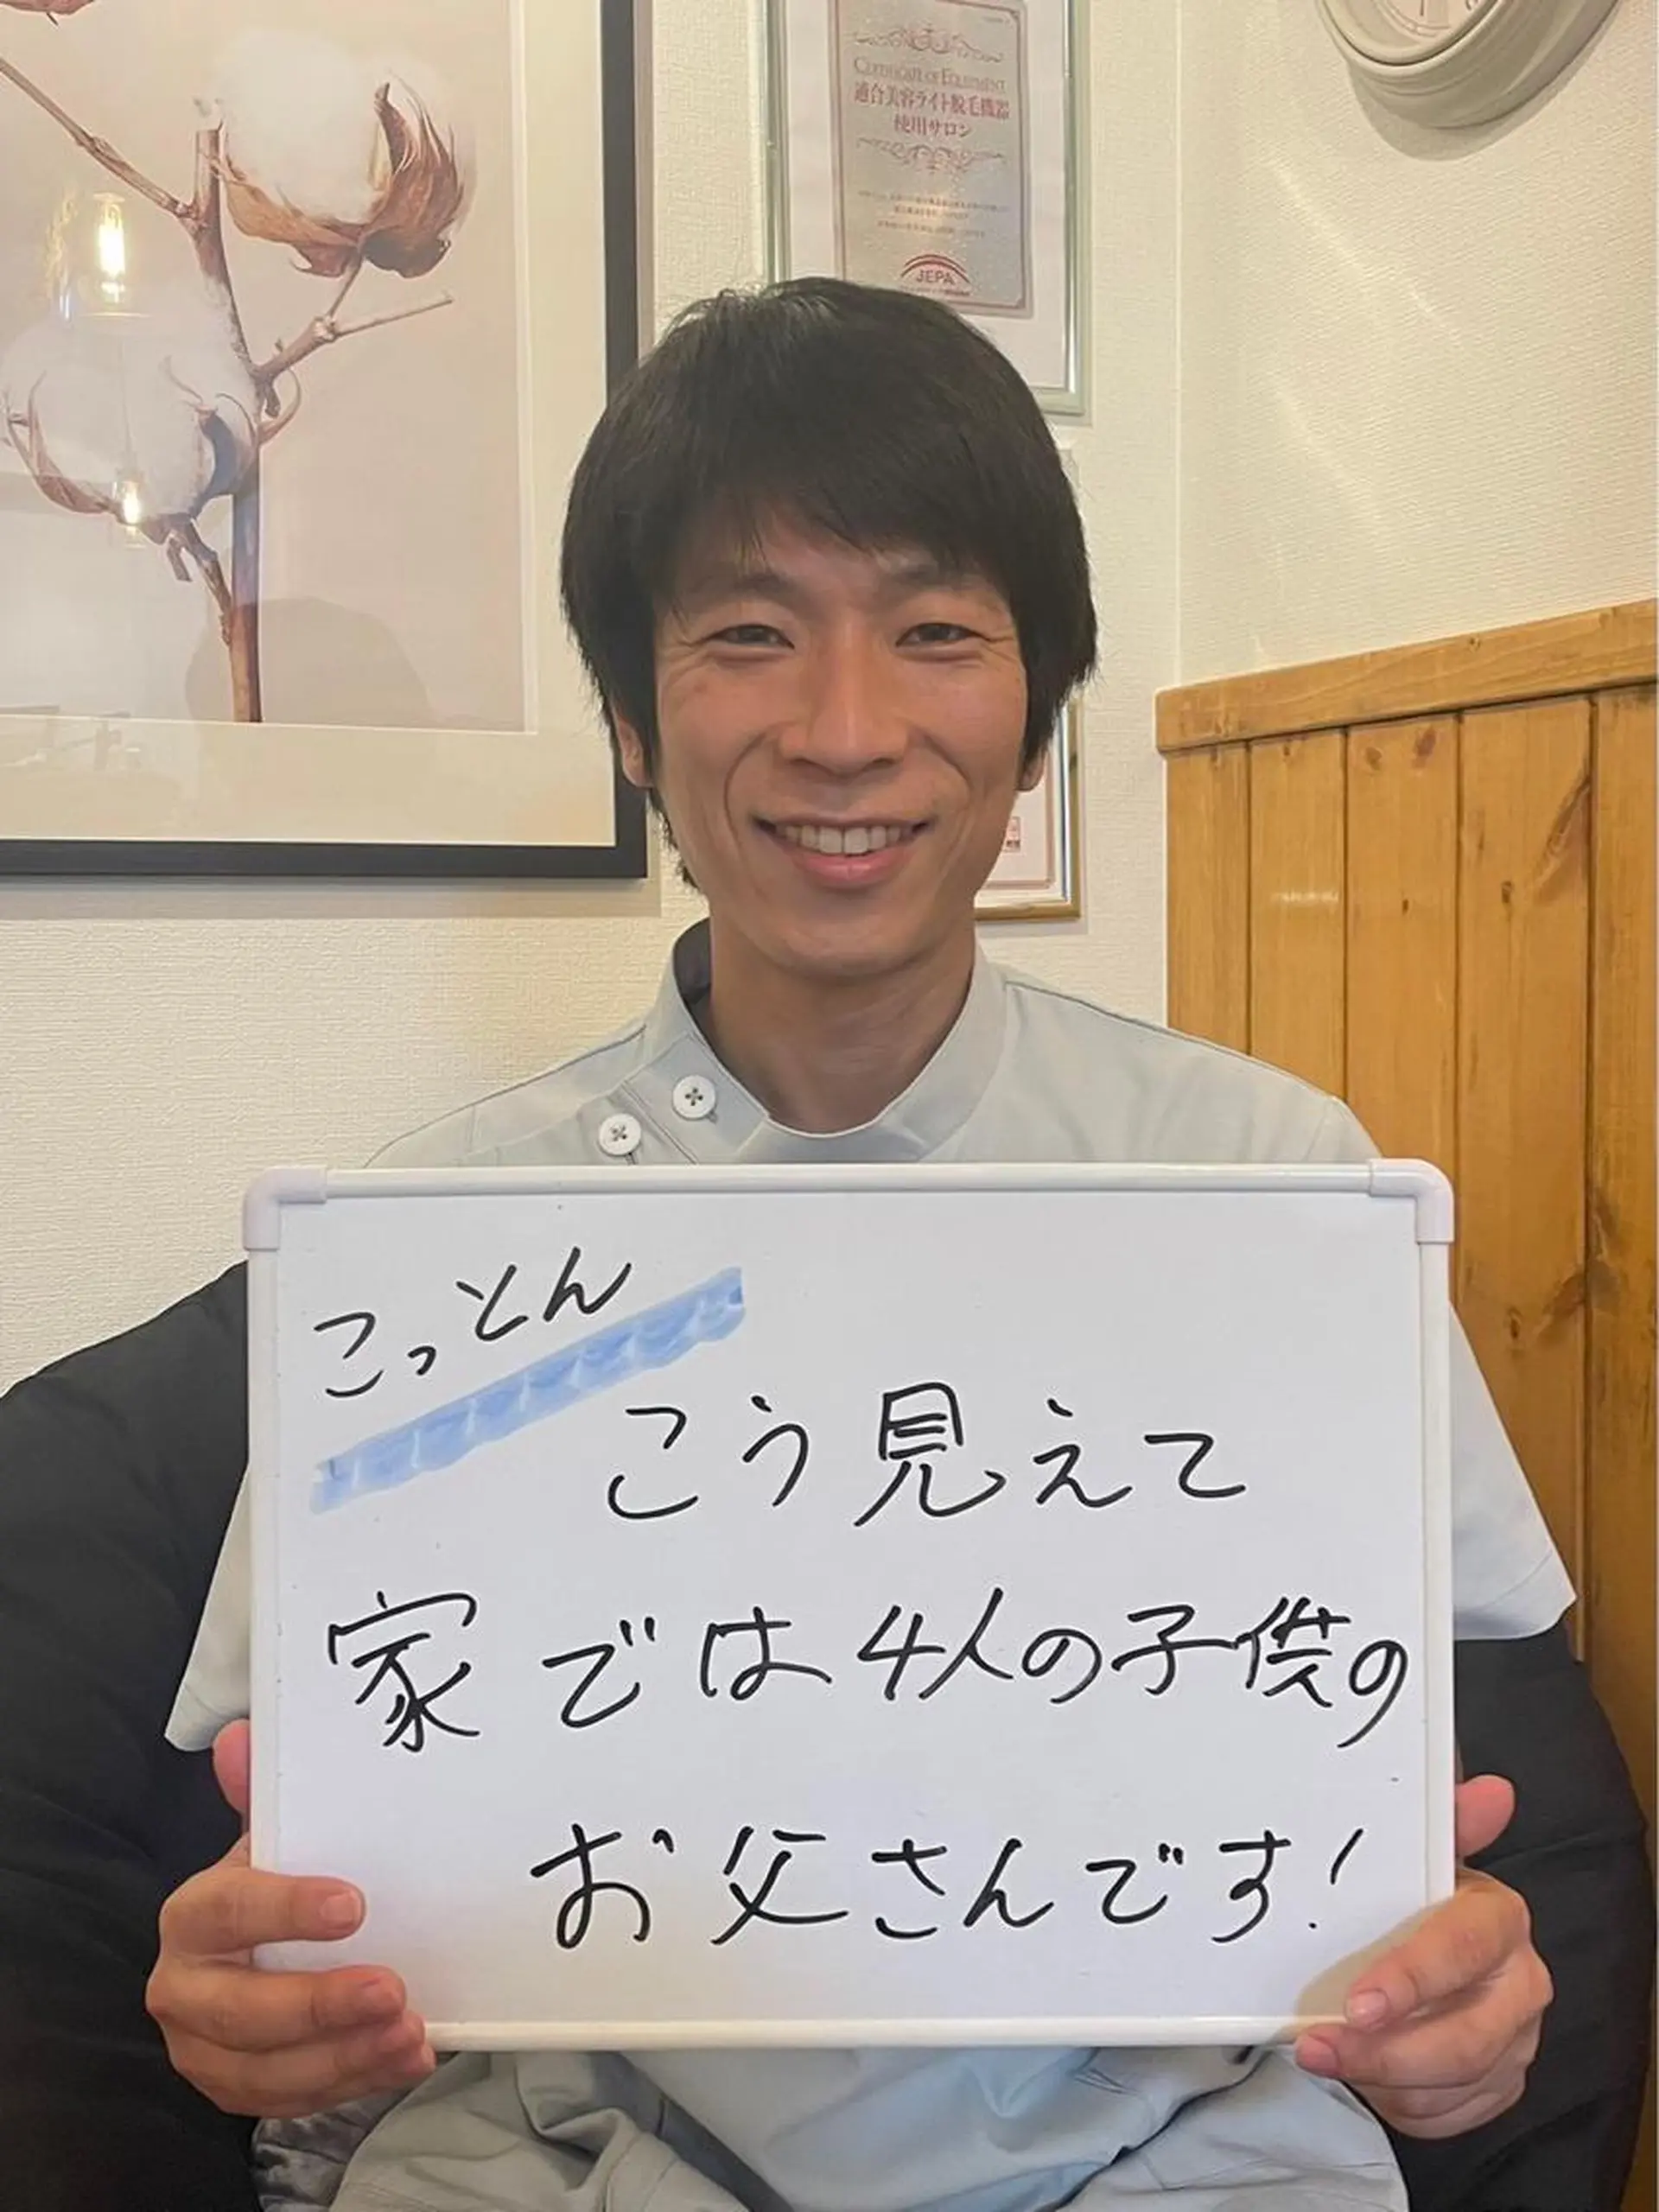 CERTIFICATE OF EQUIPMENT
適合美容ライト脱毛機器
使用サロン
JEPA
こっとん
こう見えて
家では4人の子供の
お父さんです!